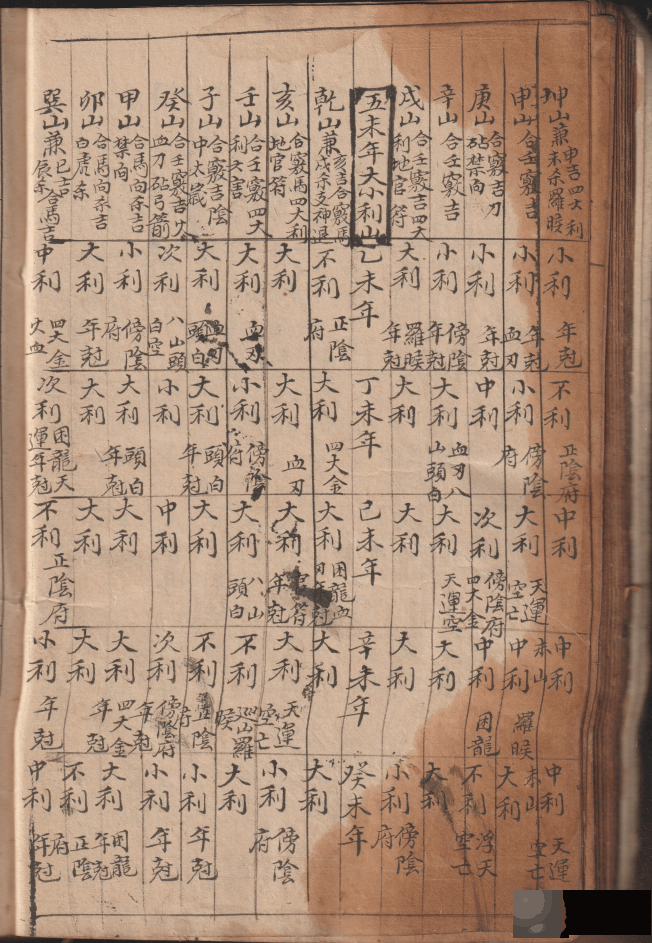 坤山兼申吉四大利未杀羅睺
小利 年尅
不利 正陰府
中利
中利
中利 天運空亡
申山合壬竅吉
小利 年尅血刃
小利 傍陰府
大利 天運空亡
未山中利 羅睺
未山大利
庚山合竅吉刀砧禁向
小利 年尅
中利
次利 傍陰府四大金
中利 困龍
不利 浮天空亡
辛山合壬竅吉
小利 傍陰年尅
大利 血刃八山頭白
大利 天運空
大利
大利
戌山合壬竅吉四大利地官符
大利 羅睺年尅
大利
大利
大利
小利 傍陰府
五未年大小利山
乙未年
丁未年
己未年
辛未年
癸未年
乾山兼亥吉合竅馬戌杀支神退
不利 正陰府
大利 四大金
大利 困龍血刃年尅
大利
大利
亥山合竅馬四大利地官符
大利
大利 血刃
大利 年尅
大利 天運空亡
小利 傍陰府
壬山合壬竅四大利災害
大利 血刃
小利 傍陰府
大利 八山頭白
不利 巡山羅睺
大利
子山合壬竅吉陰中太歲
大利 血刃頭白
大利 頭白年尅
大利
不利 正陰府
小利 年尅
癸山合壬竅吉火血刀砧弓箭
次利 八山頭白空
小利
中利
次利 傍陰府年尅
小利 年尅
甲山合馬向杀吉禁向
小利 傍陰府
大利 頭白年尅
大利
大利 四大金年尅
大利 困龍年尅
卯山合馬向杀吉白虎杀
大利 年尅
大利
大利
大利
不利 正陰府
巽山兼巳吉辰杀合馬吉
中利 四大金火血
次利 困龍天運年尅
不利 正陰府
小利 年尅
中利 年尅